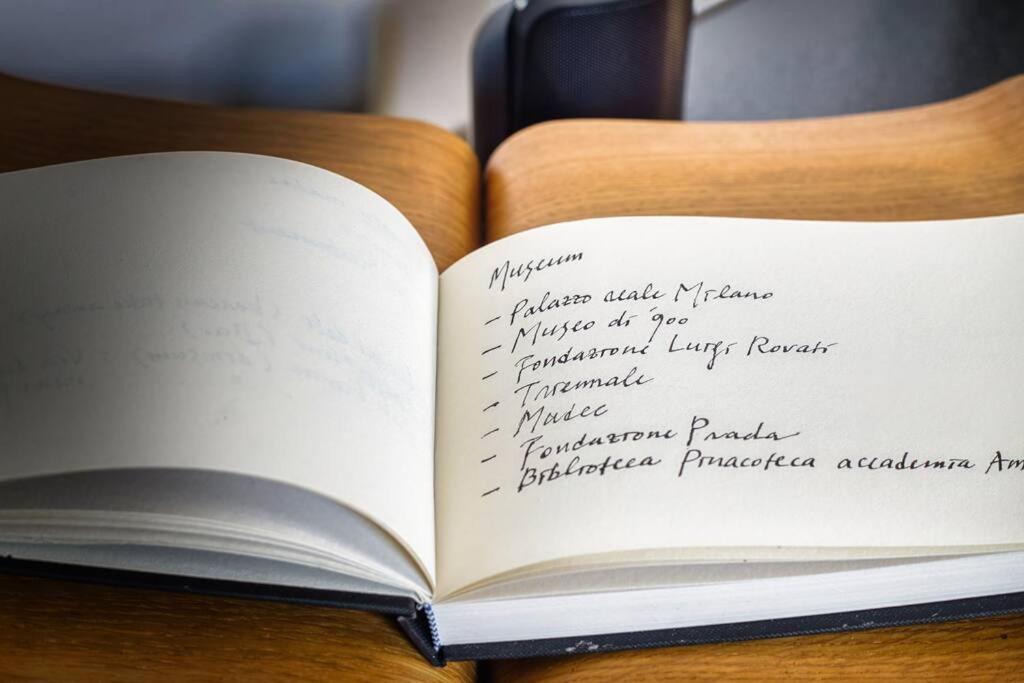 Museum
- Palazzo reale Milano
- Museo di '900
- Fondazione Luigi Rovati
- Triennale
- Mudec
- Fondazione Prada
- Biblioteca Pinacoteca accademia Am